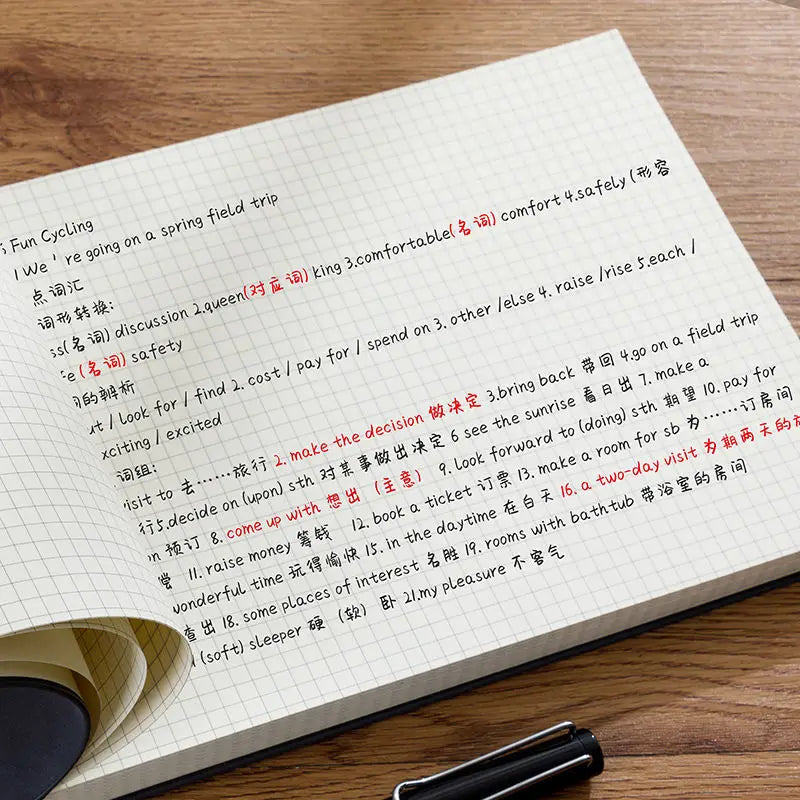 Fun Cycling
1 We ' re going on a spring field trip
点词汇
词形转换：
ss(名词) discussion 2.queen(对应词) king 3.comfortable(名词) comfort 4.safely (形容
(名词) safety
的辨析
ut / look for / find 2. cost / pay for / spend on 3. other /else 4. raise /rise 5.each /
xciting / excited
词组：
visit to 去……旅行 2. make the decision 做决定 3.bring back 带回 4.go on a field trip
行5.decide on (upon) sth 对某事做出决定 6 see the sunrise 看日出 7. make a
n 预订 8. come up with 想出（主意） 9. look forward to (doing) sth 期望 10. pay for
11. raise money 筹钱 12. book a ticket 订票 13. make a room for sb 为……订房间
wonderful time 玩得愉快 15. in the daytime 在白天 16. a two-day visit 为期两天的
查出 18. some places of interest 名胜 19. rooms with bathtub 带浴室的房间
(soft) sleeper 硬（软）卧 21.my pleasure 不客气